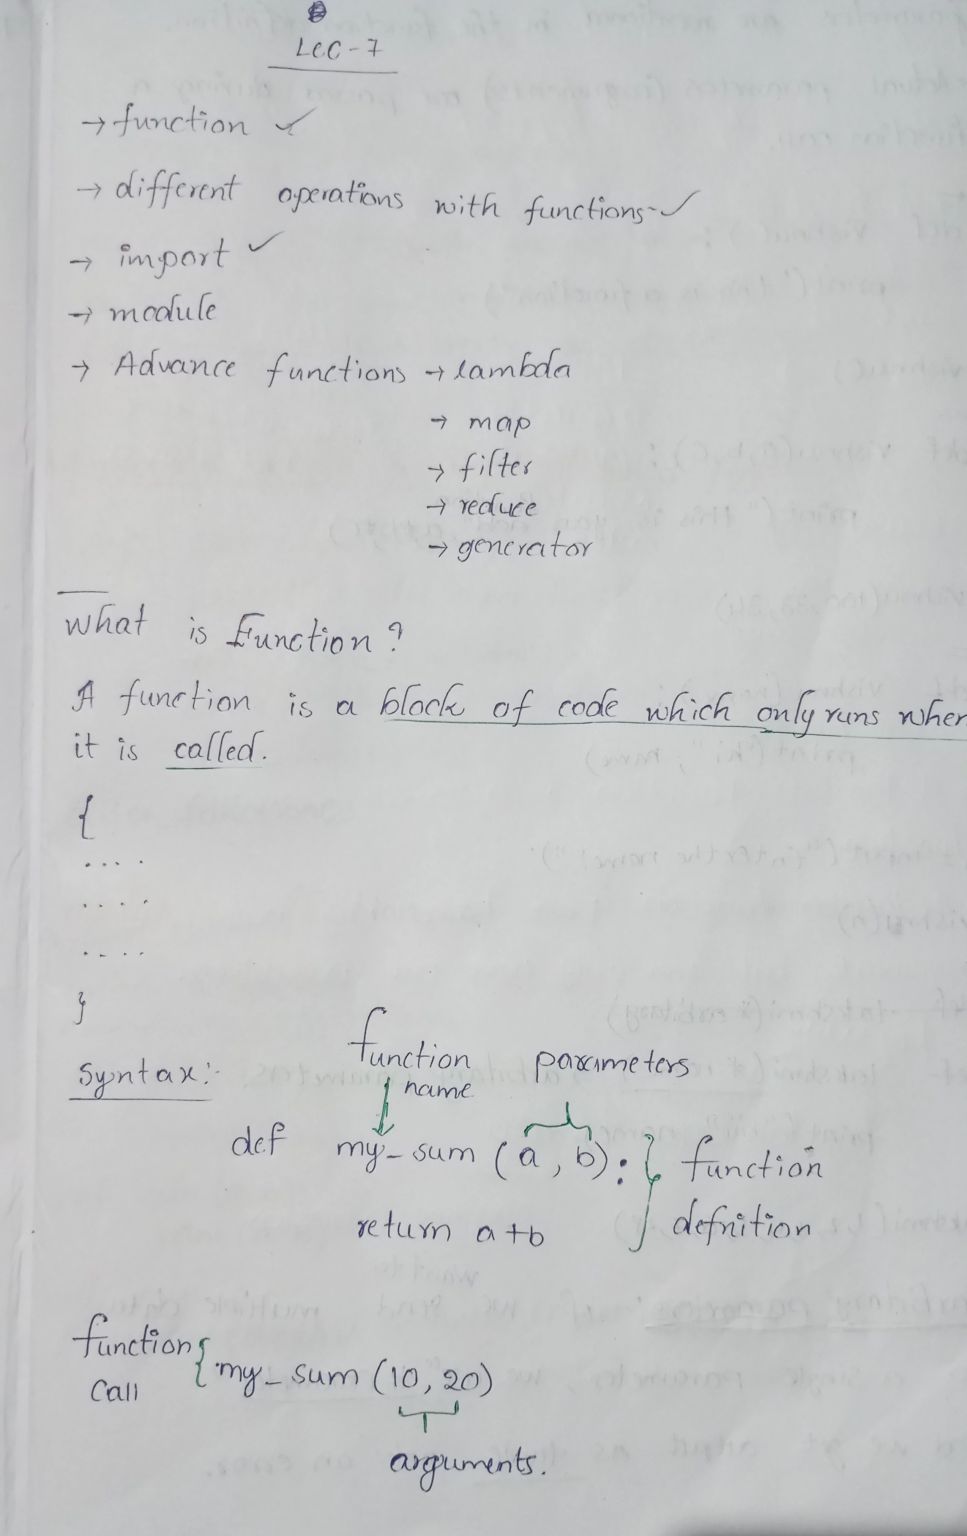 Lec-7
→ function ✓
→ different operations with functions ✓
→ import ✓
→ module
→ Advance functions → lambda
→ map
→ filter
→ reduce
→ generator
What is Function?
A function is a block of code which only runs when
it is called.
{
....
....
....
}
function parameters
Syntax:- name
def my_sum (a, b): } function
return a+b defnition
function
call { my_sum (10, 20)
arguments.